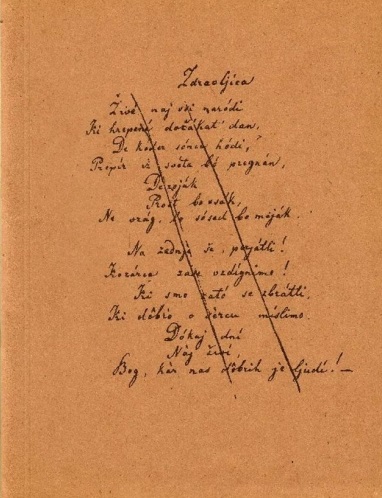 Zdravljica
Živé naj vsi naródi
Ki hrepené dočákat' dan,
De koder sónce hódi,
Prepír iz svéta bó pregnán,
De roják
Prost bo vsák,
Ne vrág, le sósed bo meják.
Na zádnje še, prijátli!
Kozárce zase vzdígnimo!
Ki smo zató se zbrátli,
Ki dôbro v sercu míslimo.
Dókaj dní
Nàj živí
Bog, kàr nas dôbrih je ljudí! —